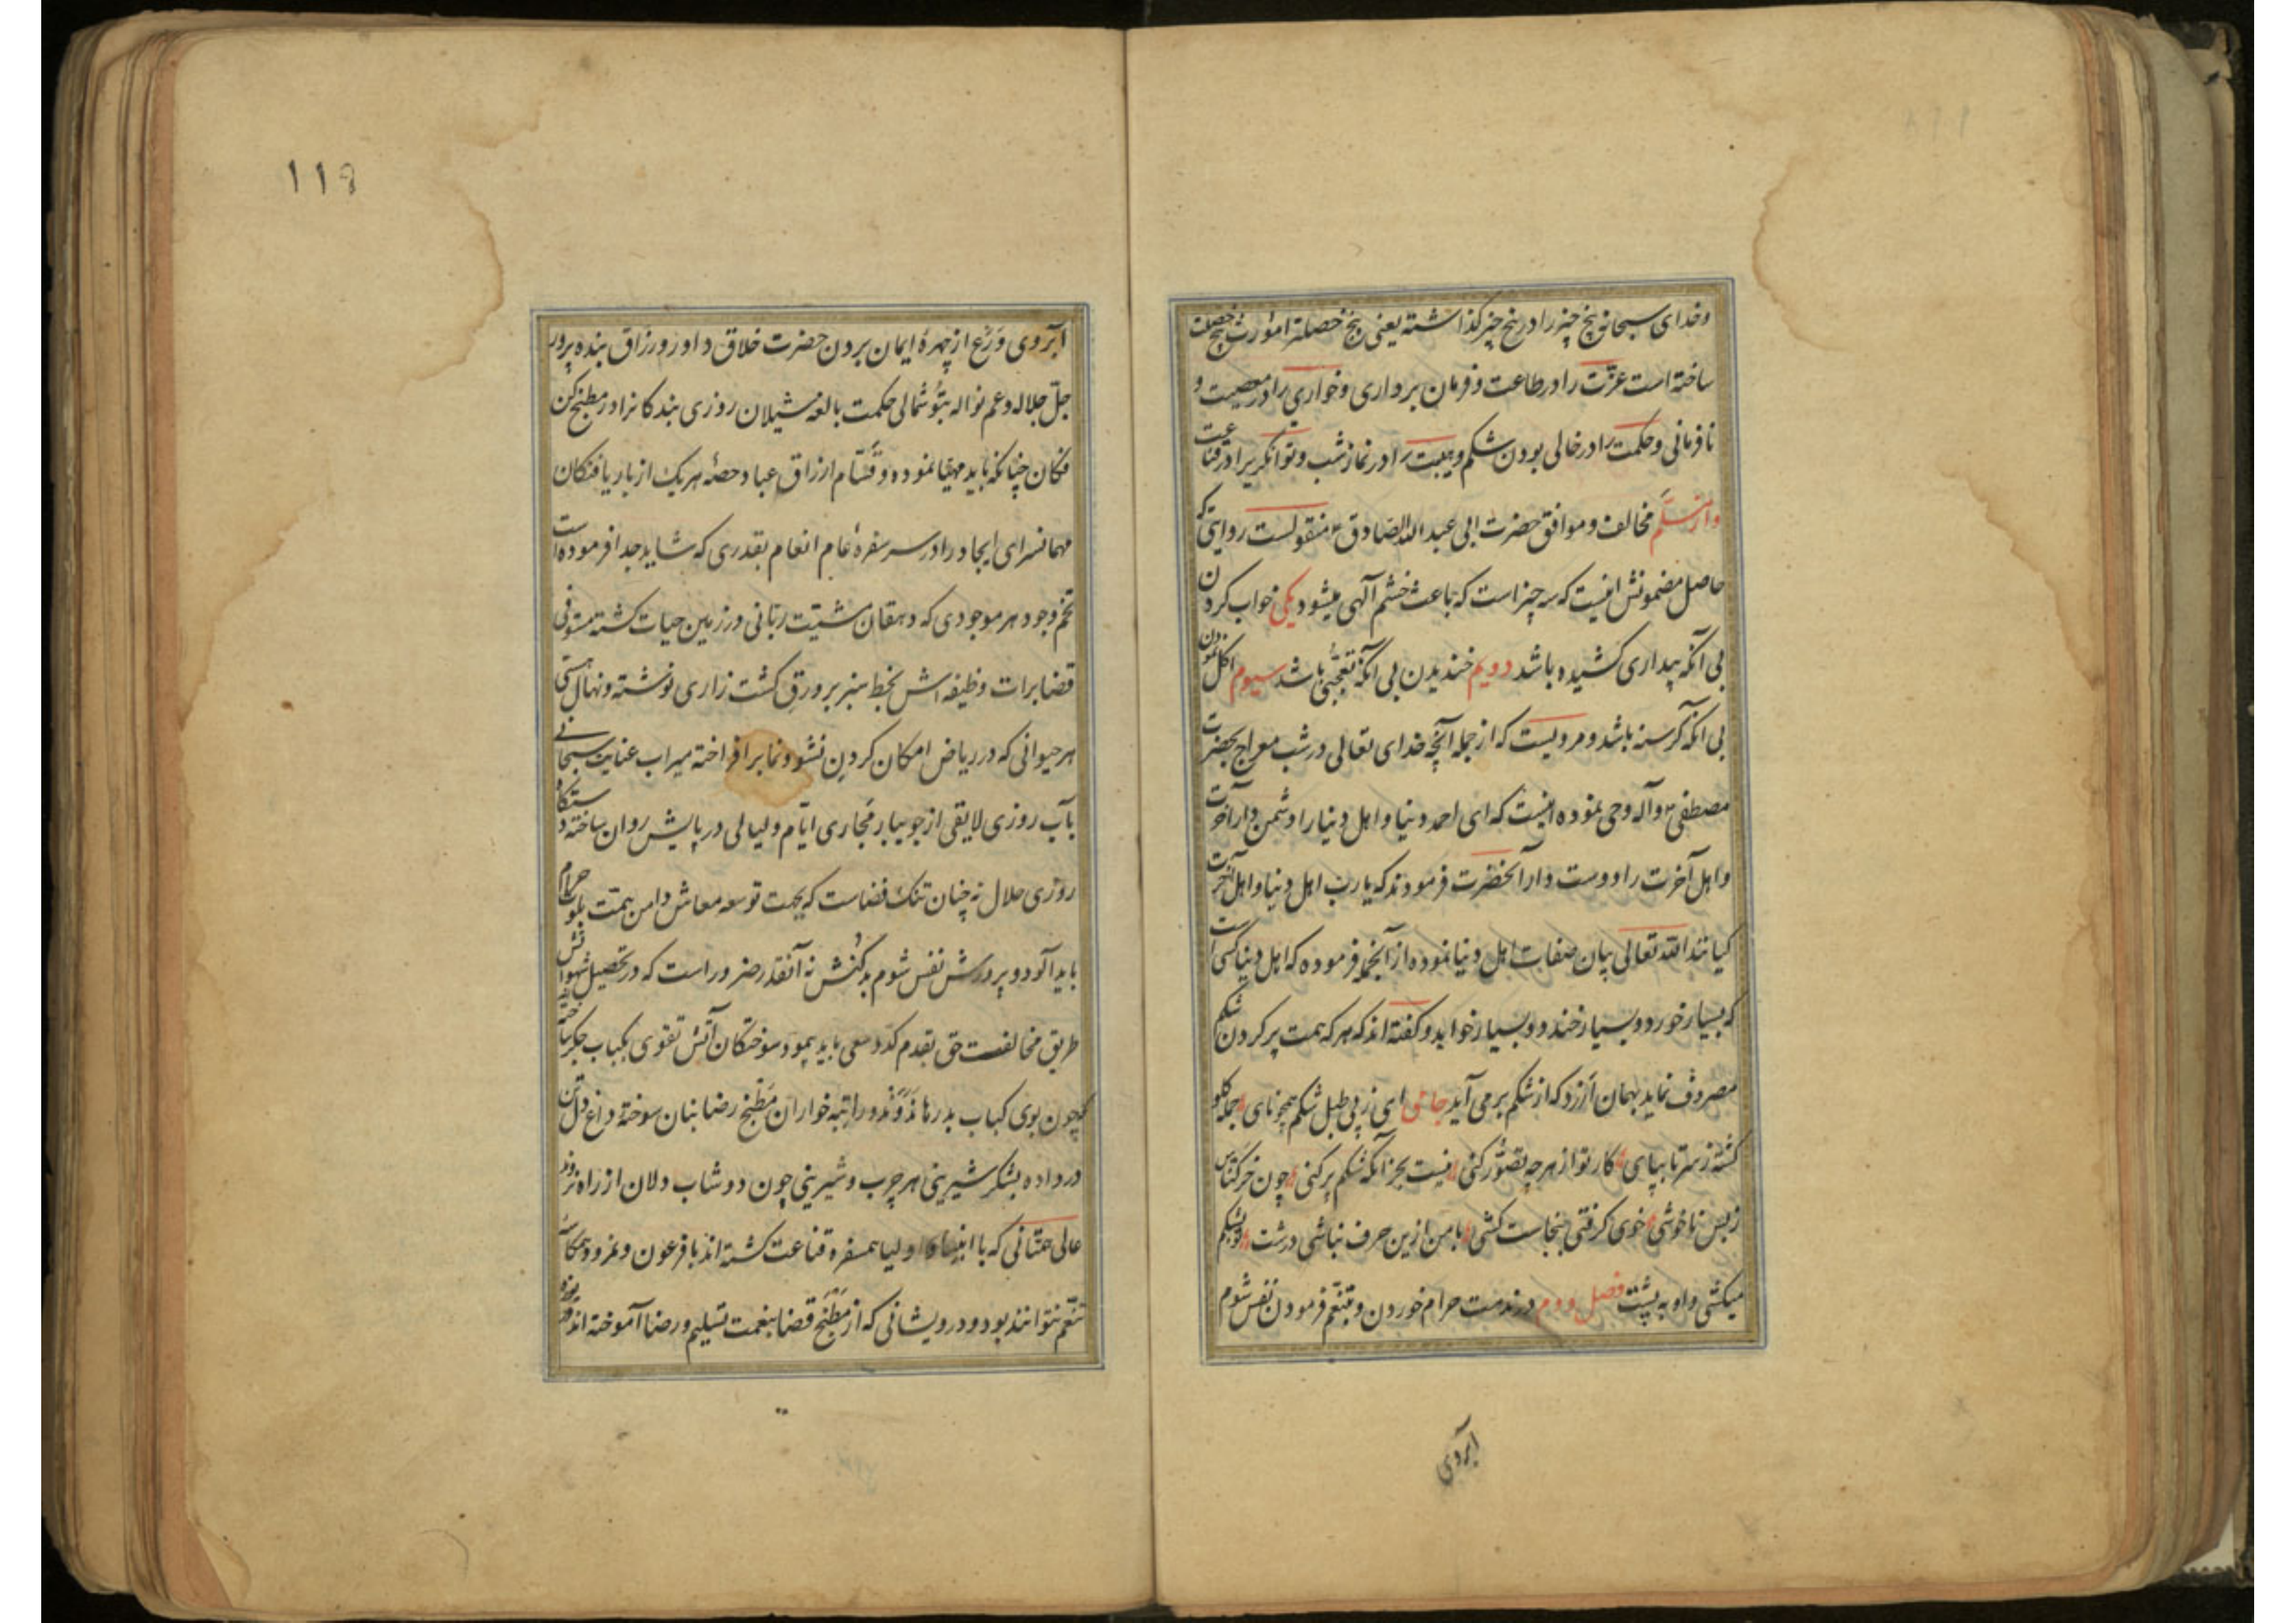 و خدای سبحانه پنج چیز را در پنج چیز گذاشته یعنی پنج خصلت را مورث پنج خصلت
ساخته است عزّت را در طاعت و فرمان برداری و خواری را در معصیت و
نافرمانی و حکمت را در خالی بودن شکم و هیبت را در نماز شب و توانگری را در قناعت
و از مخالف و موافق حضرت ابی عبد الله الصادق ع منقولست روایتی که
حاصل مضمونش اینست که سه چیز است که باعث خشم آلهی میشود یکی خواب کردن
بی آنکه بیداری کشیده باشد دویم خندیدن بی آنکه تعجّبی باشد سیوم اکل نمودن
بی آنکه گرسنه باشد و مرویست که از جمله آنچه خدای تعالی در شب معراج بحضرت
مصطفی ص و آله وحی نموده اینست که ای احمد دنیا و اهل دنیا را دشمن دار و آخرت
و اهل آخرت را دوست دار آنحضرت فرمودند که یا رب اهل دنیا و اهل آخرت
کیانند الله تعالی بیان صفات اهل دنیا نموده از آنجمله فرموده که اهل دنیا کسی است
که بسیار خورد و بسیار خندد و بسیار خوابد و گفته اند که هر که همت پر کردن شکم
مصروف نماید بهمان ارزد که از شکم بر می آید جامی ای ز پی طبل شکم همچو نای جمله گلو
گشته ز سر تا بپای کار تو از هر چه تصوّر کنی نیست بجز آنکه شکم پر کنی چون خر کنّاس
ز بس ناخوشی خوی گرفتی بنجاست کشی با من ازین حرف نباشی درشت تو بشکم
میکشی و او به پشت فصل دوم در مذمت حرام خوردن و تنعّم فرمودن نفس شوم
آبروی
118
آبروی وَرَع از چهرهٔ ایمان بردن حضرت خلاق داور و رزاق بنده پرور
جلّ جلاله و عم نواله بتوشمالی حکمت بالغه شیلان روزی بندکانرا در مطبخ کن
فکان چنانکه باید مهیّا نموده و قسّام ارزاق عباد حصهٔ هر یک از بار یافتکان
مهمانسرای ایجاد را در سر سفرهٔ عام انعام بقدری که شاید جدا فرموده است
تخم وجود هر موجودی که دهقان مشیّت ربّانی در زمین حیات کشته مستوفی
قضا برات وظیفه اش بخط سبز بر ورق کشت زاری نوشته و نهال هستی
هر حیوانی که در ریاض امکان کردن نشو و نما برافراخته میراب عنایت سبحانی
بآب روزی لایقی از جویبار مَجاری ایّام و لیالی در پایش روان ساخته دستگاه
روزی حلال نه چنان تنک فضاست که بجهت توسعه معاش دامن همت بلوث حرام
باید آلود و پرورش نفس شوم بدکنش نه آنقدر ضرور است که در تحصیل شهواتش
طریق مخالفت حق بقدم کدّ و سعی باید پیمود سوختکان آتش تقوی بکباب جکر ساخته
چون بوی کباب بدرها نَدَوَنْد و راتبه خواران مَطبخ رضا بنان سوخته داغ دل تن
در داده بشکر شیرینی هر چرب و شیرینی چون دوشاب دلان از راه نروند
عالی همّتانی که با انبیا و اولیا همسفره قناعت کشته اند با فرعون و نمرود همکاسه
تنعّم نتوانند بود و درویشانی که از مَطبخ قضا بنعمت تسلیم و رضا آموخته اند